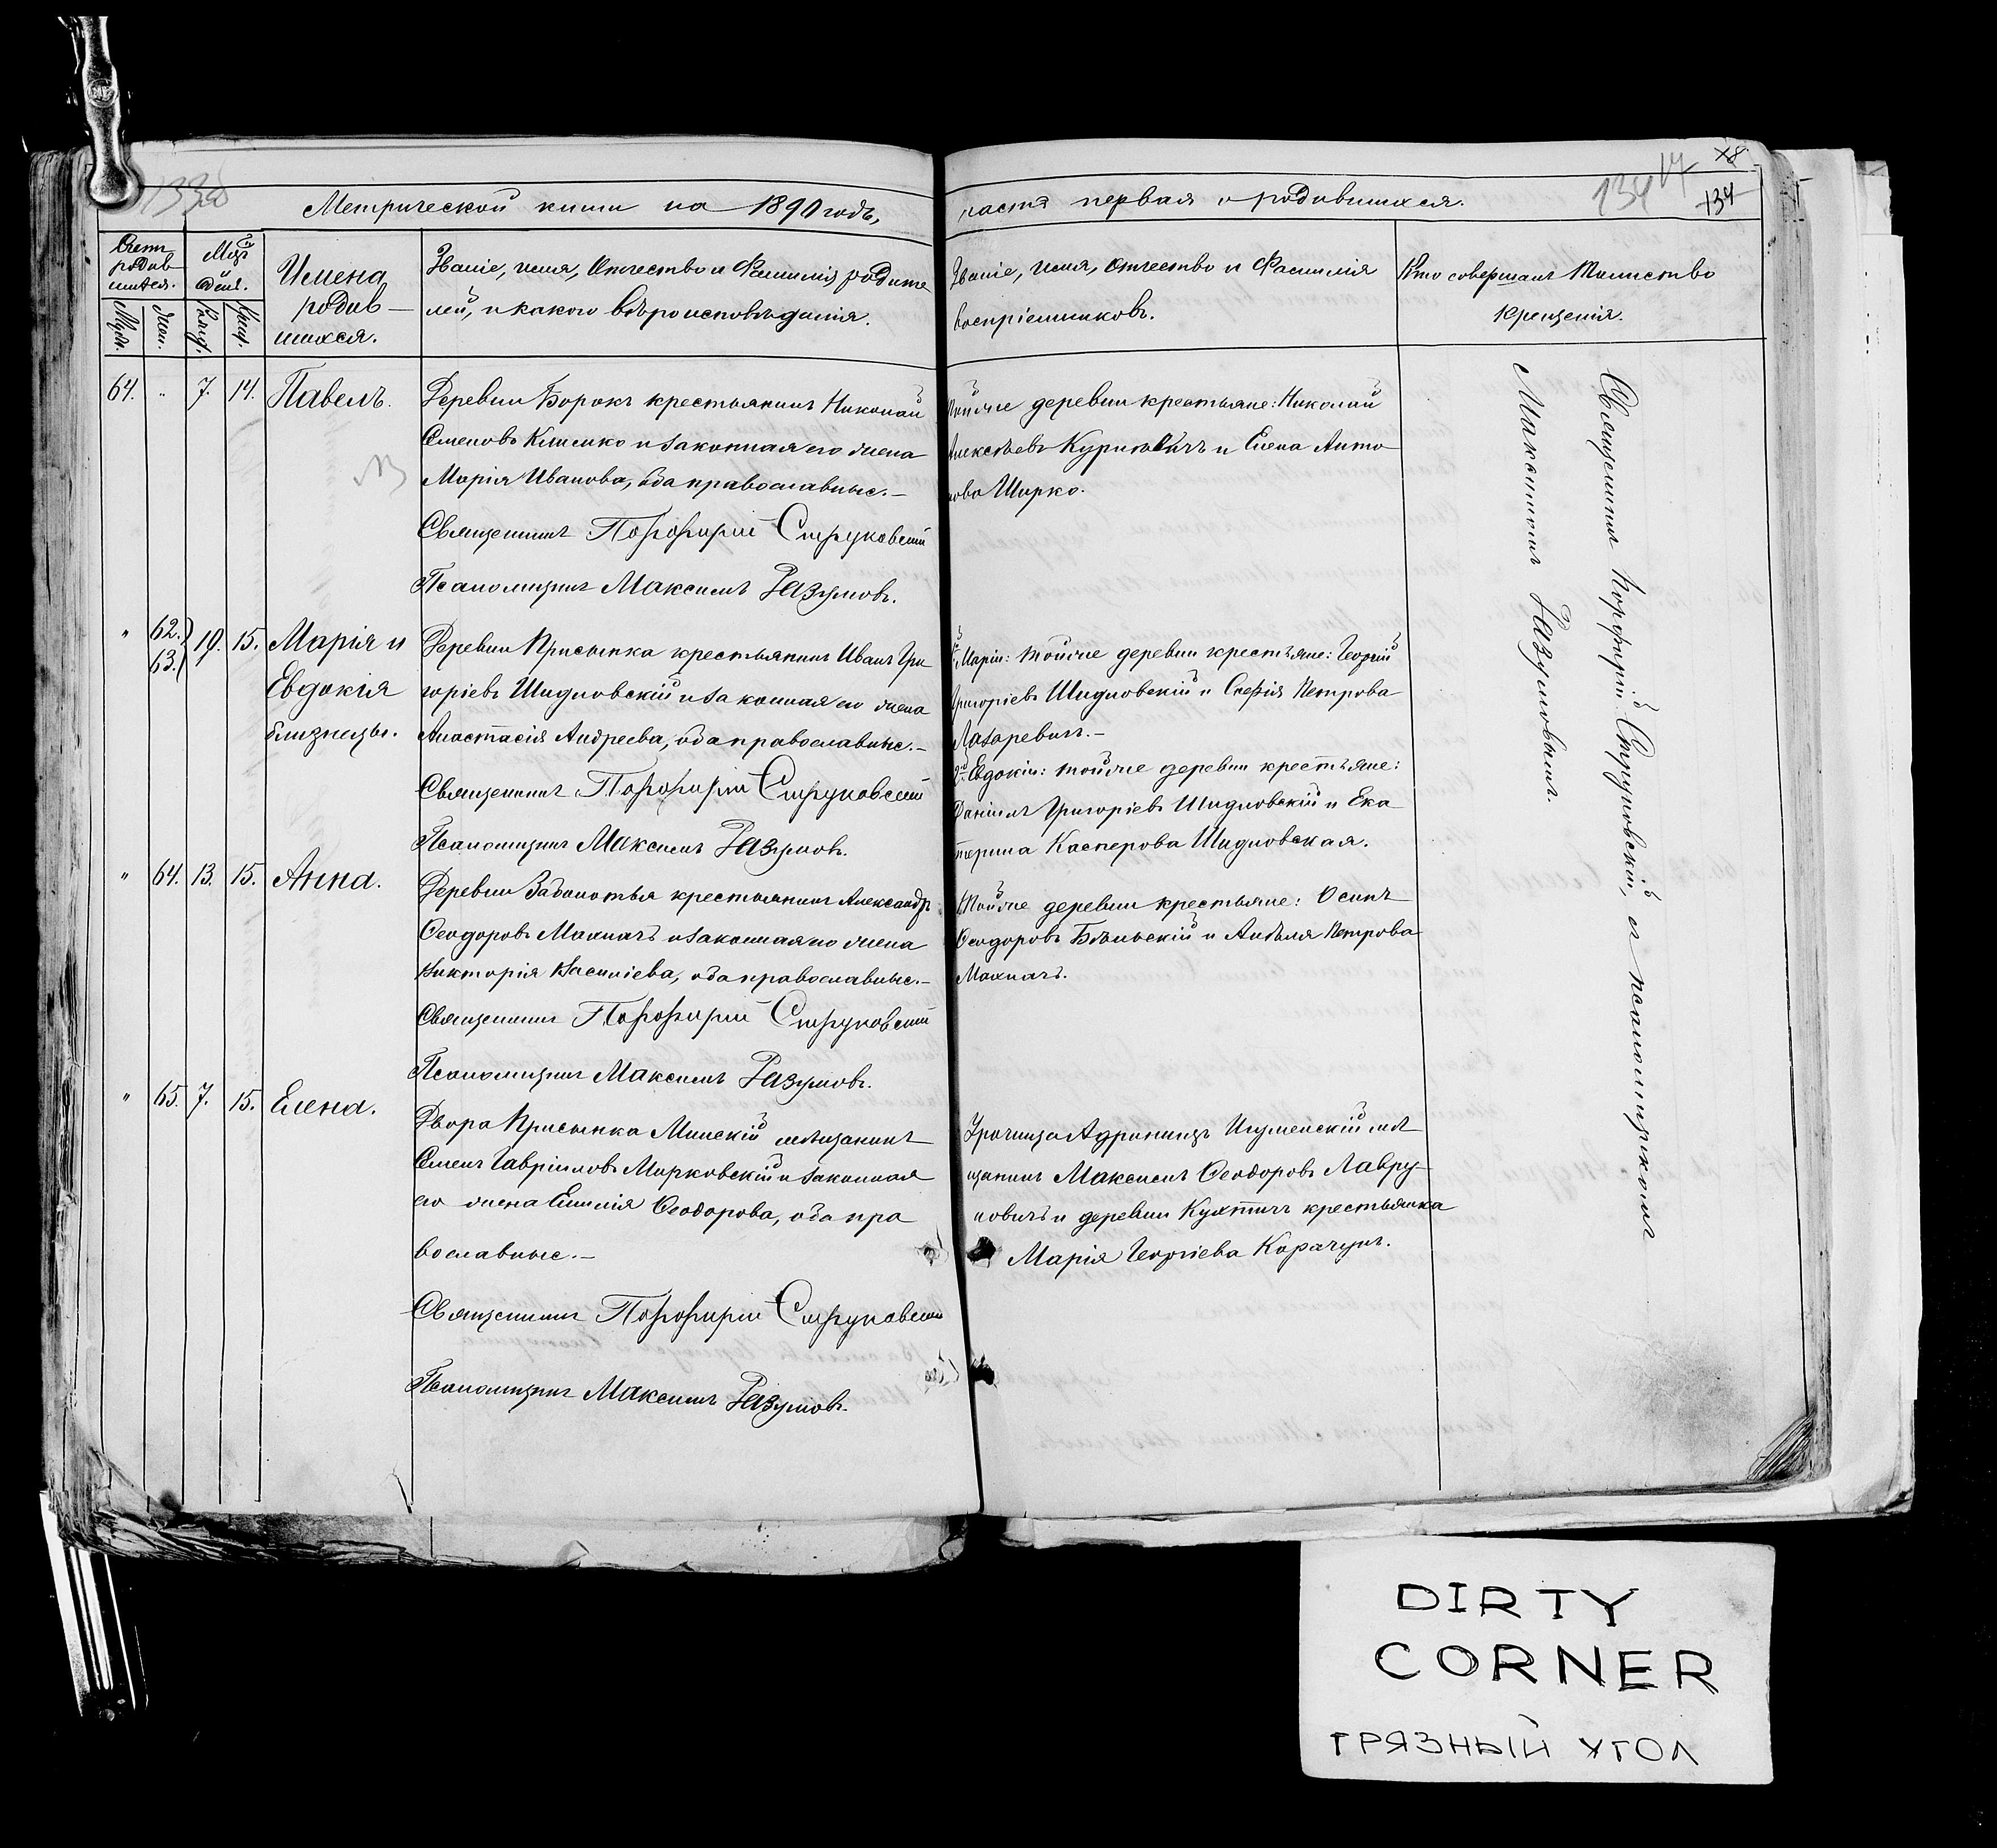 Метрической книги на 1890 годъ,
Счетъ родив шихся.
Муж.
Жен.
Мѣс. и день.
Рожд.
Крещ.
Имена
родив—
шихся.
Званіе, имя, отчество и фамилія родите
лей, и какого вѣроисповѣданія.
64. " 7. 14. Павелъ.
Деревни Борокъ крестьянинъ Николай
Семеновъ Клименко и законная его жена
Марія Иванова, оба православные.—
Священникъ Порфирій Струковскій
Псаломщикъ Максимъ Разумовъ.
" 62. 63. 10. 15. Марія и
Евдокія
близнецы.
Деревни Присынка крестьянинъ Иванъ Гри
горіевъ Шидловскій и законная его жена
Анастасія Андреева, оба православные.—
Священникъ Порфирій Струковскій
Псаломщикъ Максимъ Разумовъ.
" 64. 13. 15. Анна.
Деревни Заболотья крестьянинъ Александръ
Ѳеодоровъ Махначъ и законная его жена
Викторія Василіева, оба православные.—
Священникъ Порфирій Струковскій
Псаломщикъ Максимъ Разумовъ.
" 65. 7. 15. Елена.
Двора Присынка Минскій мѣщанинъ
Семенъ Гавріиловъ Марковскій и законная
его жена Емилія Ѳеодорова, оба пра
вославные.—
Священникъ Порфирій Струковскій
Псаломщикъ Максимъ Разумовъ.
134
134
часть первая о родившихся.
Званіе, имя, отчество и фамилія
воспріемниковъ.
Кто совершалъ Таинство
Крещенія.
Тойже деревни крестьяне: Николай
Алексѣевъ Куриловичъ и Елена Анто
нова Ширко.
Маріи: тойже деревни крестьяне: Георгій
Григоріевъ Шидловскій и Софія Петрова
Лазаревичъ.—
Евдокіи: тойже деревни крестьяне:
Даніилъ Григоріевъ Шидловскій и Ека
терина Касперова Шидловская.
Тойже деревни крестьяне: Осипъ
Ѳеодоровъ Бѣльскій и Анѣля Петрова
Махначъ.
Урочища Адриницъ Игуменскій мѣ
щанинъ Максимъ Ѳеодоровъ Лавру—
новичъ и деревни Кухтичъ крестьянка
Марія Георгіева Карачунъ.
Священникъ Порфирій Струковскій, съ псаломщикомъ
Максимомъ Разумовымъ.
DIRTY
CORNER
ГРЯЗНЫЙ УГОЛ